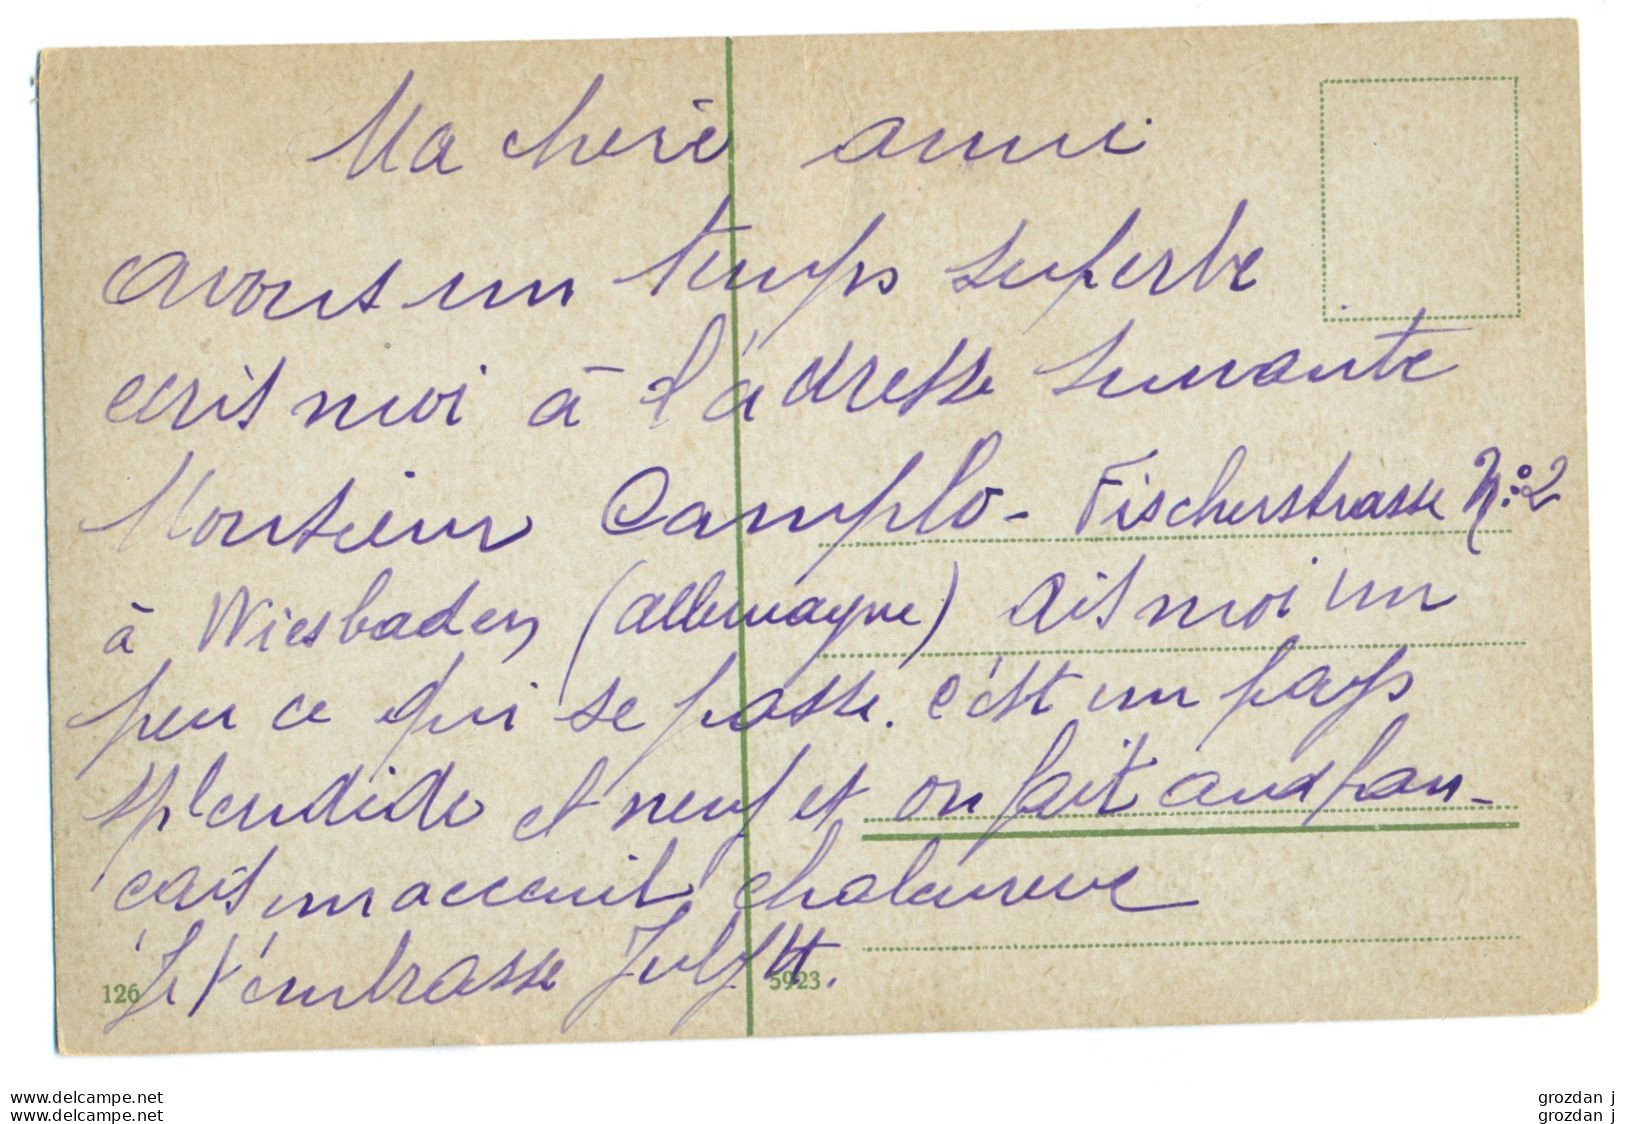 Ma cherè amie
avons un temps superbe
ecris moi à l'adresse suivante
Monsieur Camplo - Fischerstrasse No: 2
à Wiesbaden (allemagne) dis moi un
peu ce qui se passe. c'est un pays
splendide et neuf et on fait aux fran-
cais un acceuil chaleureux
Je t'embrasse
126
5923
www.delcampe.net grozdan j
www.delcampe.net grozdan j